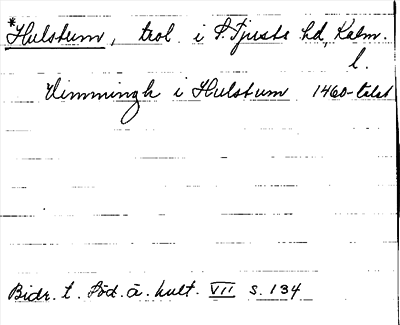 *Hulstum, trol. i S. Tjusts hd, Kalm.
l.
Vimmingh i Hulstum 1460-talet
Bidr. t. Söd. ä. kult. VII s. 134